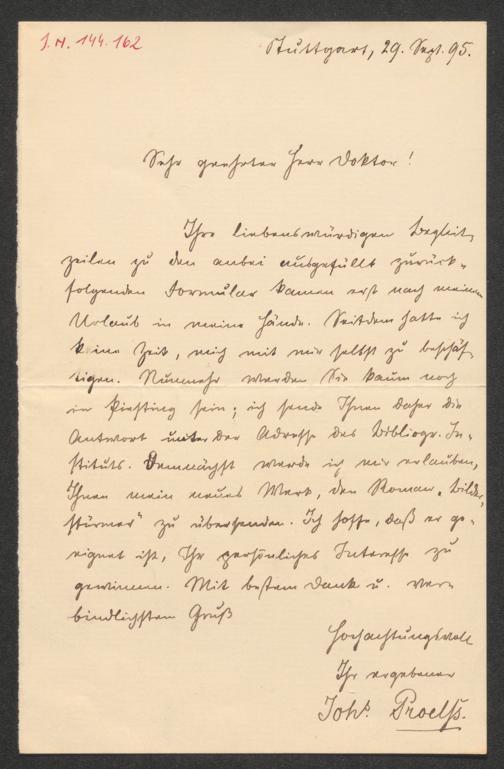 J. N. 144.162
Stuttgart, 29. Sept. 95.
Sehr geehrter Herr Doktor!
Ihre liebenswürdigen Begleit-
zeilen zu dem anbei ausgefüllt zurück-
folgenden Formular kamen erst nach meinem
Urlaub in meine Hände. Seitdem hatte ich
keine Zeit, mich mit mir selbst zu beschäf-
tigen. Nunmehr werden Sie kaum noch
in Piesting sein; ich sende Ihnen daher die
Antwort unter der Adresse des Bibliogr. In-
stituts. Demnächst werde ich mir erlauben,
Ihnen mein neues Werk, den Roman „Bilder-
stürmer" zu übersenden. Ich hoffe, daß er ge-
eignet ist, Ihr persönliches Interesse zu
gewinnen. Mit bestem Dank u. ver-
bindlichstem Gruß
Hochachtungsvoll
Ihr ergebener
Johs. Proelß.